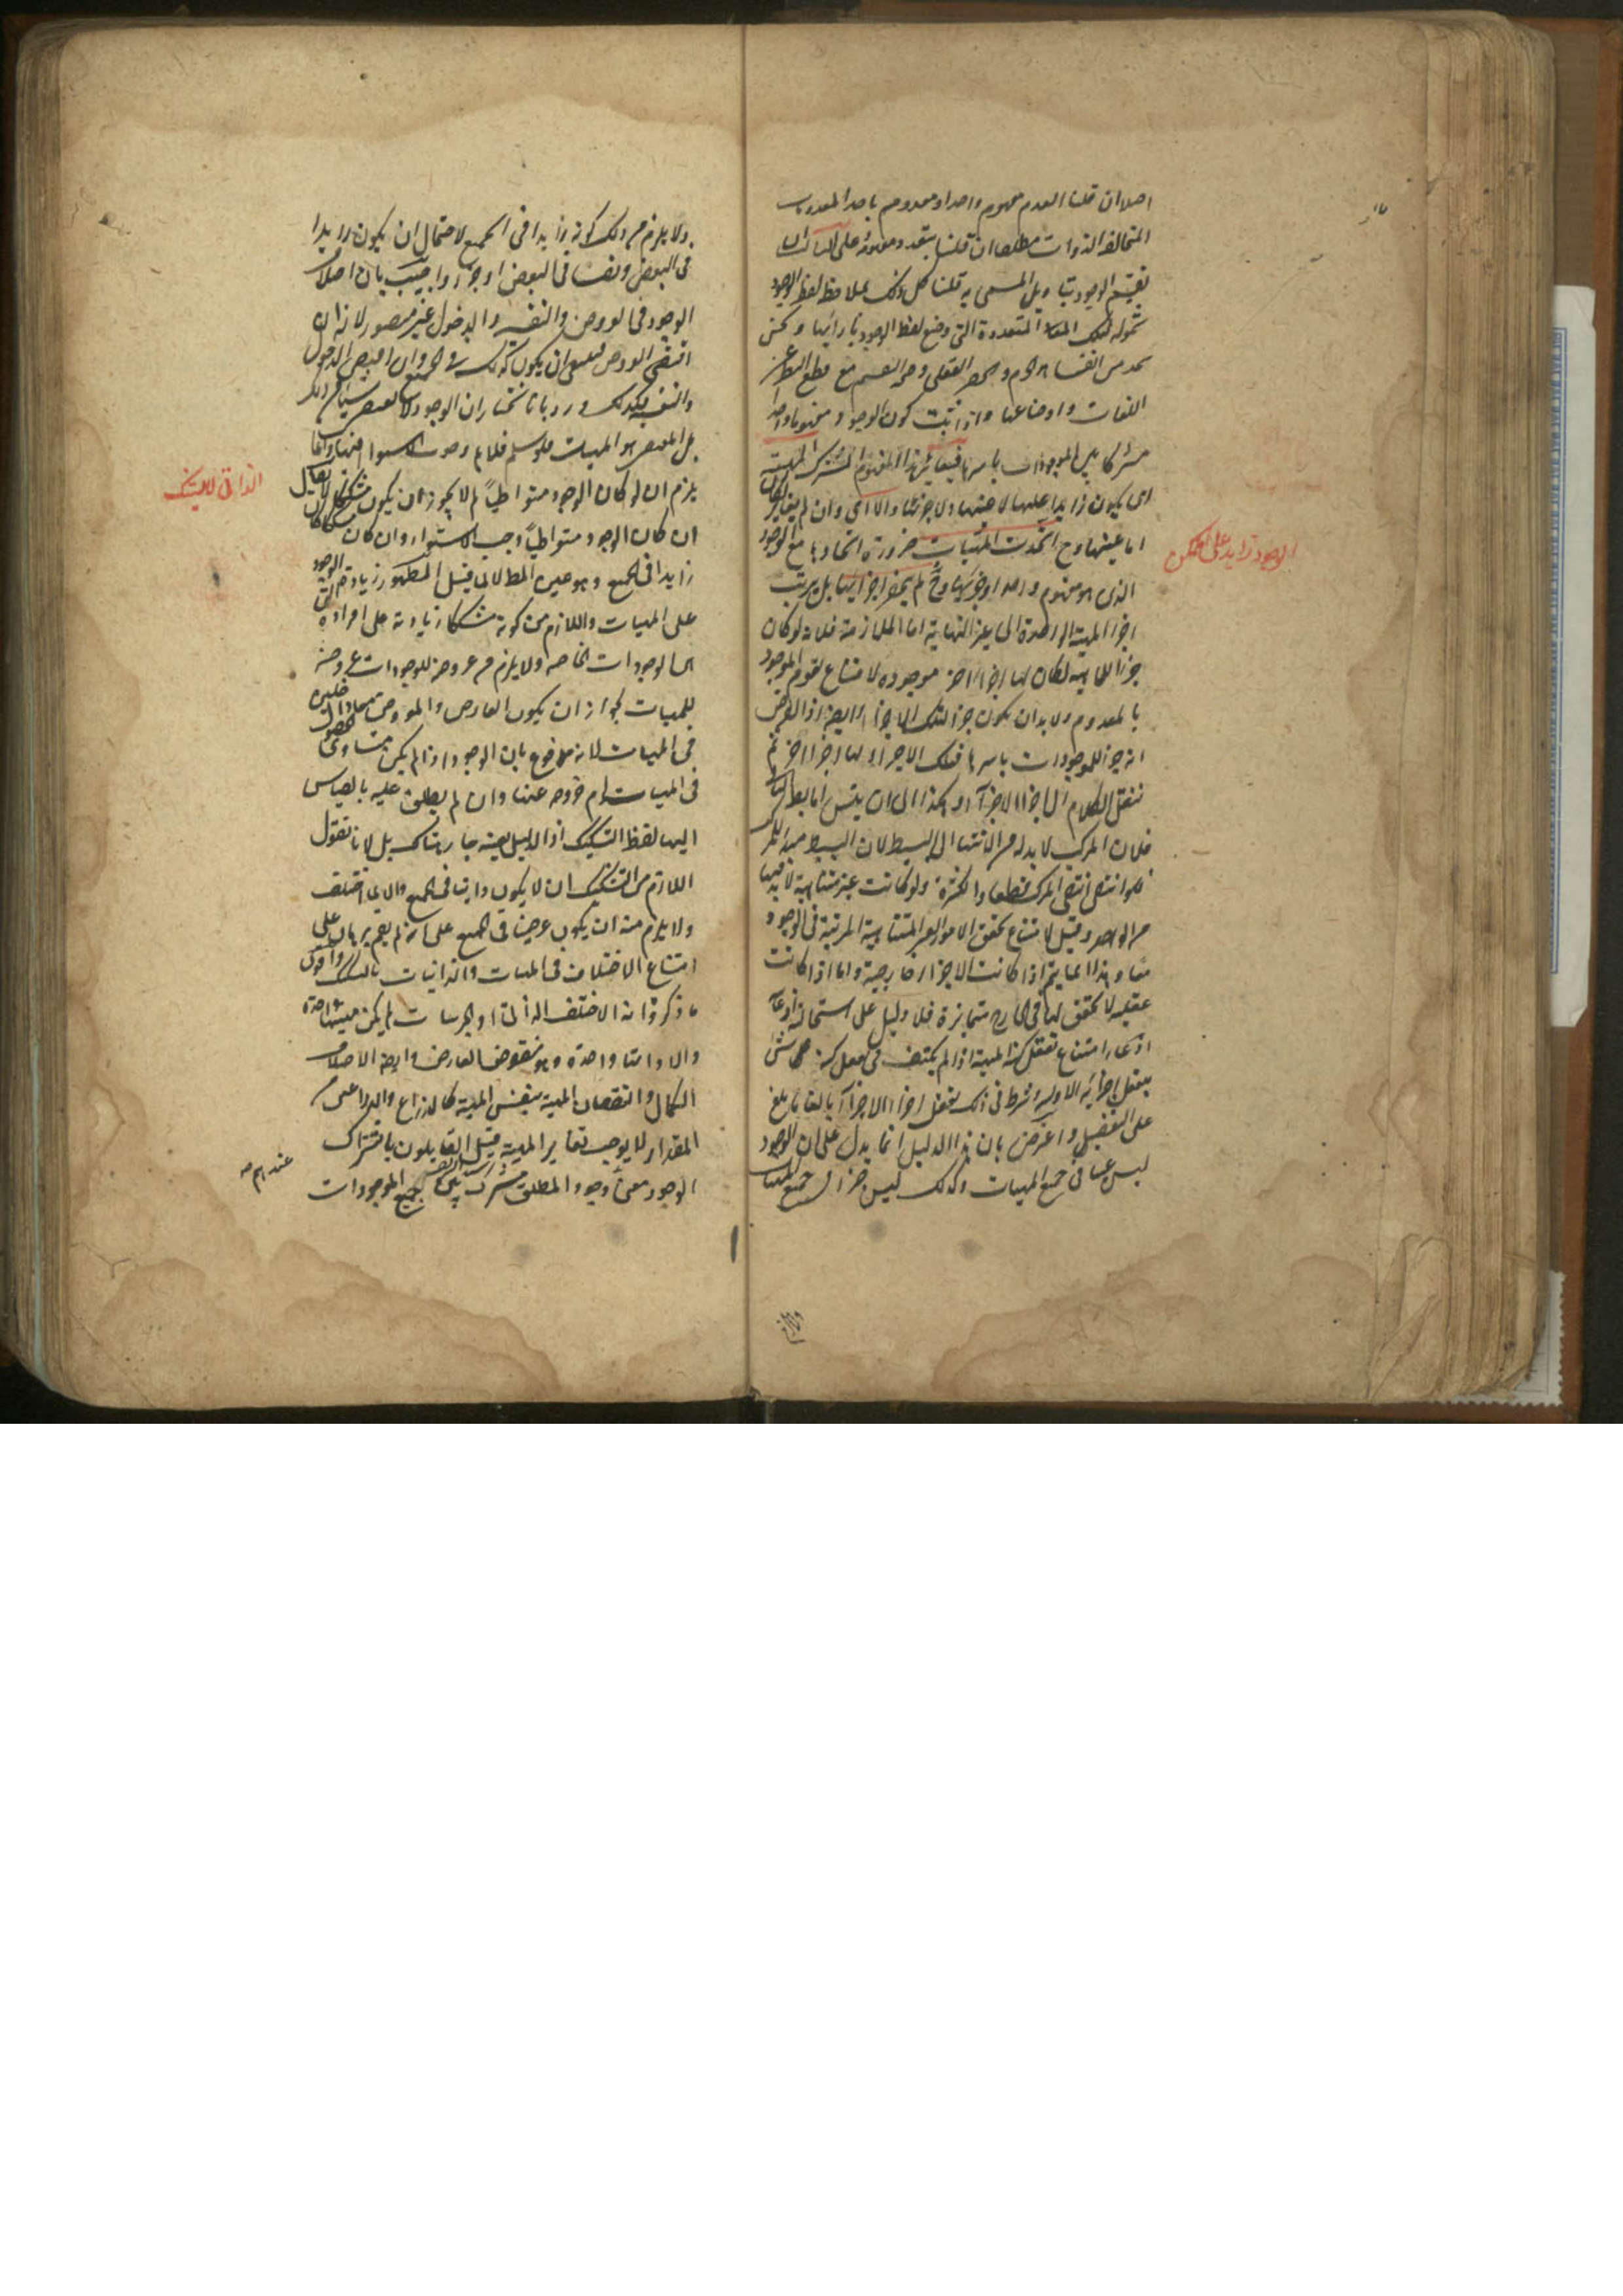 اصلا ان قلنا العدم مفهوم واحد او معدوم باحد المعدومات
المتخالفة الذوات مطلقا ان قلنا بتعدد مفهومه على
تقسيم الوجود بتاويل المسمى به قلنا كل ذلك بملاحظة لفظ الوجود
شموله لتلك المتعددة التى وضع لفظ الوجود بازائها ونحن
نجد من انفسنا الجزم والحصر العقلى وصحة التقسيم مع قطع النظر عن
اللغات واوضاعها واذا ثبت كون الوجود مفهوما واحدا
مشتركا بين الموجودات باسرها فيغاير هذا المفهوم المشترك المهية
اى يكون زايدا عليها لا عينها ولا جزئها والا اى وان لم يغاير لكان
اما عينها وح اتحدت المهيات ضرورة اتحادها مع الوجود
الذى هو مفهوم واحد او جزئها وح لم ينحصر اجزائها بل يترتب
اجزاء المهية الواحدة الى غير النهاية اما الملازمة فلانه لو كان
جزء للماهية لكان لها اجزاء اخر موجودة لامتناع تقوم الموجود
بالمعدوم ولا بد ان يكون جزء لتلك الاجزاء ايضا اذ الفرض
انه جزء للموجودات باسرها فتلك الاجزاء لها اجزاء اخر ثم
ننقل الكلام الى اجزاء الاجزاء وهكذا الى ان يتس اما بطلان
فلان المركب لا بد له من الانتهاء الى البسيط لان البسيط مبدء المركب
فلو انتفى انتفى المركب قطعا والكثرة ولو كانت غير متناهية لا بد فيها
من الواحد وقيل لامتناع تحقق الامور الغير المتناهية المرتبة فى الوجود
معا وهذا انما يتم اذا كانت الاجزاء خارجية واما اذا كانت
عقلية لا تحقق لها فى الخارج متمايزة فلا دليل على استحالته
امتناع تعقل كنه المهية اذا لم يكتف فى تعقل كنه
بتعقل اجزائه الاولية وشرط فى ذلك تعقل اجزاء الاجزاء بالغا ما بلغ
على التفصيل واعترض بان هذا الدليل انما يدل على ان الوجود
ليس عينا فى جميع المهيات وكذلك ليس جزءا لجميع المهيات
الوجود زايد على الممكن
ولا يلزم من ذلك كونه زايدا فى الجميع لاحتمال ان يكون زايدا
فى البعض ونفسا فى البعض او جزء واجيب بان اختلاف
الوجود فى العروض والنفسية والدخول غير متصور لانه ان
اقتضى العروض فينبغى ان يكون كذلك فى الجميع وان اقتضى الدخول
والنفسية فكذلك ورد بانا نختار ان الوجود لا يقتضى شيئا من ذلك
بل المقتضى هو المهيات ولو سلم فلا نم وجوب الاستواء فيها وانما
يلزم ان لو كان الوجود متواطيا لم لا يجوز ان يكون مشككا لا يقال
ان كان الوجود متواطيا وجب الاستواء وان كان مشككا كان
زايدا فى الجميع وهو عين المط لانا نقول المطلوب زيادة الوجود
على المهيات واللازم من كونه مشككا زيادته على افراده
الوجودات الخاصة ولا يلزم من عروضه للوجودات عروضه
للمهيات لجواز ان يكون العارض والمعروض
فى المهيات لانه مدفوع بان الوجود اذا لم يكن متساوى الحصول
فى المهيات لزم خروجه عنها وان لم يطلق عليه بالقياس
اليها لفظ التشكيك اذ الدليل بعينه جار هناك بل لانا نقول
اللازم من التشكيك ان لا يكون ذاتيا فى الجميع والا لما اختلف
ولا يلزم منه ان يكون عرضيا فى الجميع على انه لم يقم برهان على
امتناع الاختلاف فى المهيات والذاتيات بالتشكيك واقوى
ما ذكروا انه اذا اختلف الذاتيات او الجزئيات لم يكن مهيتها واحدة
والا ذاتها واحدة وهو منقوض بالعارض وايضا الاختلاف
بالكمال والنقصان المهية بنفس المهية كالذراع والذراعين من
المقدار لا يوجب تغاير المهية قيل القايلون باشتراك
الوجود معنى وجود المطلق مشترك بين جميع الموجودات
الذاتى للتشكيك
عندهم صح